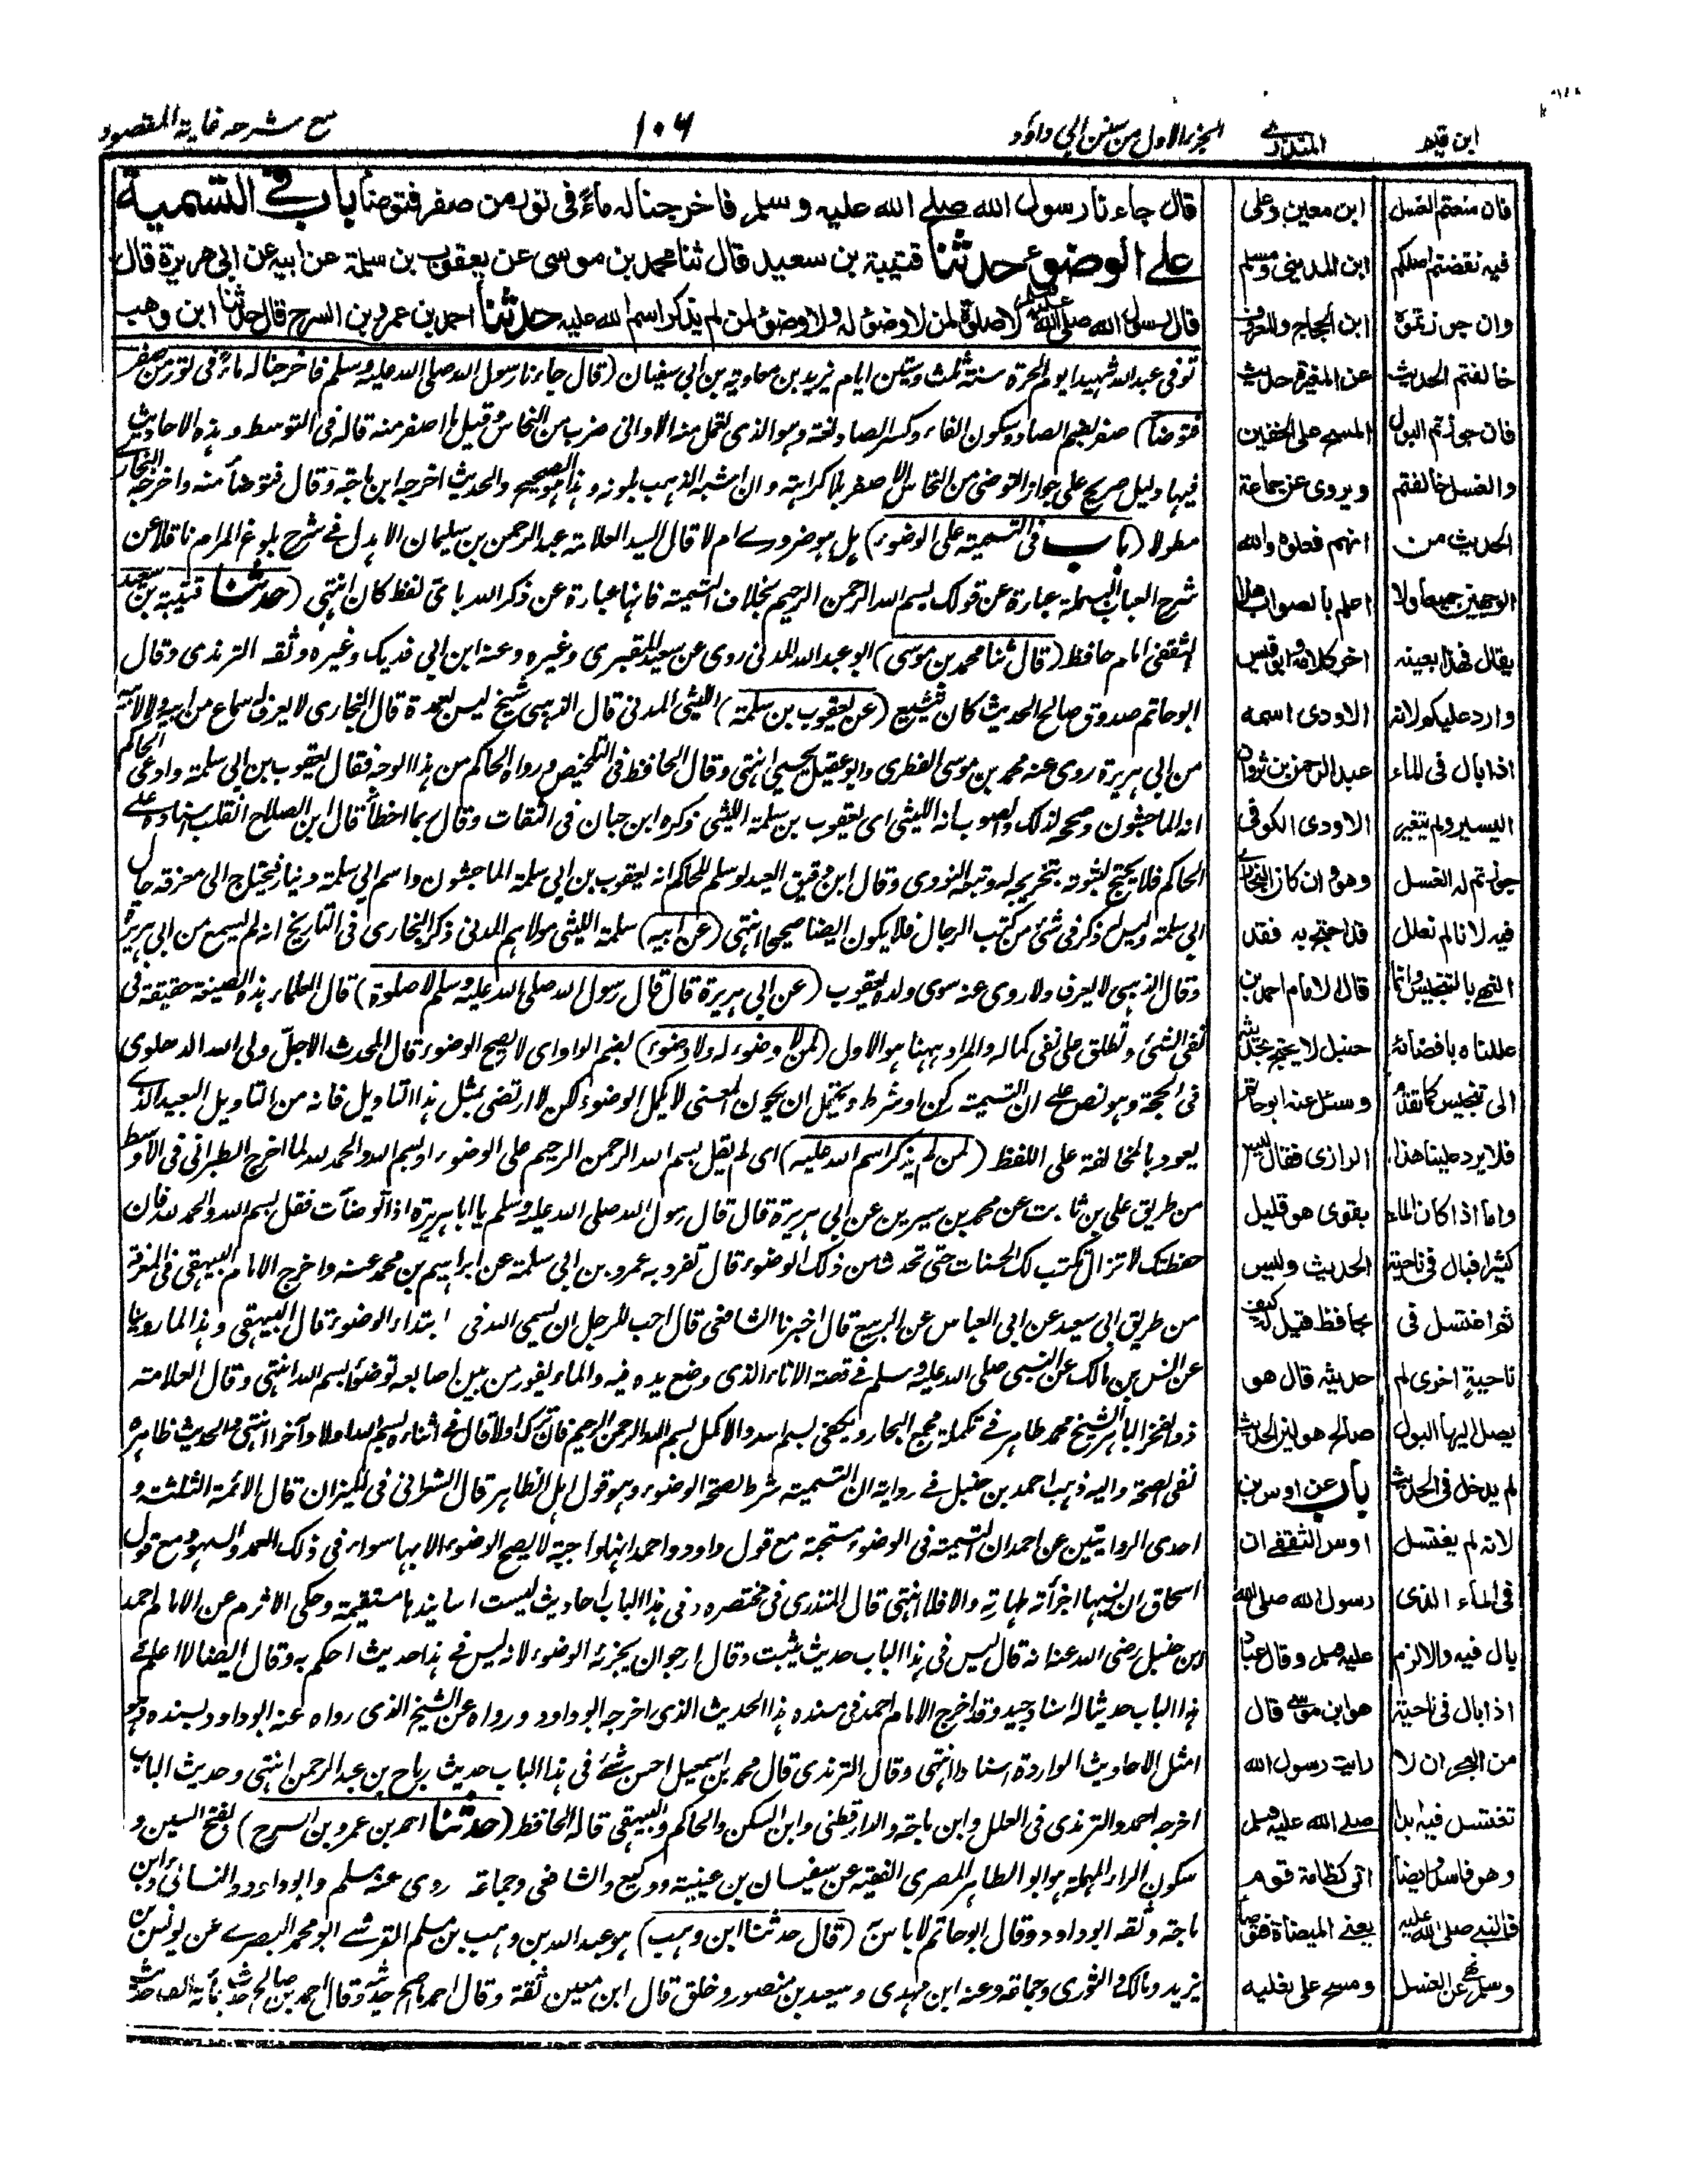 ابن قيم
المنذري
الجزء الاول من سنن ابي داود
١٠٦
مع شرحه غاية المقصود
قال جاءنا رسول الله صلى الله عليه وسلم فاخرجنا له ماءً فى تور من صفر فتوضأ باب فى التسمية
على الوضوء حدثنا قتيبة بن سعيد قال ثنا محمد بن موسى عن يعقوب بن سلمة عن ابيه عن ابى هريرة قال
قال رسول الله صلى الله عليه وسلم لا صلوة لمن لا وضوء له ولا وضوء لمن لم يذكر اسم الله عليه حدثنا احمد بن عمرو بن السرح قال حدثنا ابن وهب
توفى عبد الله شهيدا يوم الحرة سنة ثلث وستين ايام يزيد بن معاوية بن ابى سفيان (قال جاءنا رسول الله صلى الله عليه وسلم فاخرجنا له ماءً فى تور من صفر
فتوضأ) صفر بضم الصاد وسكون الفاء وكسر الصاد لغة وهو الذى تعمل منه الاوانى ضرب من النحاس وقيل ما اصفر منه قاله فى التوسط وهذه الاحاديث
فيها دليل صريح على جواز التوضى من النحاس الاصفر بلا كراهة وان اشبه الذهب بلونه وهذا هو الصحيح والحديث اخرجه ابن ماجة وقال فتوضأ منه واخرجه البخارى
مطولا (باب فى التسمية على الوضوء) هل هو ضرورى ام لا قال السيد العلامة عبد الرحمن بن سليمان الاهدل فى شرح بلوغ المرام ناقلا عن
شرح العباب البسملة عبارة عن قولك بسم الله الرحمن الرحيم بخلاف التسمية فانها عبارة عن ذكر الله باى لفظ كان انتهى (حدثنا قتيبة بن سعيد
الثقفى امام حافظ (قال ثنا محمد بن موسى) ابو عبد الله المدنى روى عن سعيد المقبرى وغيره وعنه ابن ابى فديك وغيره وثقه الترمذى وقال
ابو حاتم صدوق صالح الحديث كان يتشيع (عن يعقوب بن سلمة) الليثى المدنى قال الذهبى شيخ ليس بعمدة قال البخارى لا يعرف له سماع من ابيه ولا لابيه
من ابى هريرة روى عنه محمد بن موسى الفطرى وابو عقيل يحيى انتهى وقال الحافظ فى التلخيص ورواه الحاكم من هذا الوجه فقال يعقوب بن ابى سلمة وادعى الحاكم
انه الماجشون وصححه لذلك والصوب انه الليثى اى يعقوب بن سلمة الليثى ذكره ابن حبان فى الثقات وقال ربما اخطأ قال ابن الصلاح انقلب اسناده على
الحاكم فلا يحتج لثبوته بتخريجه له وتبعه النووى وقال ابن دقيق العيد لو سلم للحاكم انه يعقوب بن ابى سلمة الماجشون واسم ابى سلمة دينار فيحتاج الى معرفة حال
ابى سلمة وليس له ذكر فى شئ من كتب الرجال فلا يكون ايضا صحيحا انتهى (عن ابيه) سلمة الليثى مولاهم المدنى ذكر البخارى فى التاريخ انه لم يسمع من ابى هريرة
وقال الذهبى لا يعرف ولا روى عنه سوى ولده يعقوب (عن ابى هريرة قال قال رسول الله صلى الله عليه وسلم لا صلوة) قال العلماء هذه الصيغة حقيقة فى
نفى الشئ وتطلق على نفى كماله والمراد ههنا هو الاول (لمن لا وضوء له ولا وضوء) بضم الواو اى لا يصح الوضوء قال المحدث الاجل ولى الله الدهلوى
فى الحجة وهو نص على ان التسمية ركن او شرط ويحتمل ان يكون المعنى لا يكمل الوضوء لكن لا ارتضى بمثل هذا التاويل فانه من التاويل البعيد الذى
يعود بالمخالفة على اللفظ (لمن لم يذكر اسم الله عليه) اى لم يقل بسم الله الرحمن الرحيم على الوضوء او بسم الله والحمد لله لما اخرج الطبرانى فى الاوسط
من طريق على بن ثابت عن محمد بن سيرين عن ابى هريرة قال قال رسول الله صلى الله عليه وسلم يا ابا هريرة اذا توضأت فقل بسم الله والحمد لله فان
حفظتك لا تزال تكتب لك الحسنات حتى تحدث من ذلك الوضوء قال تفرد به عمرو بن ابى سلمة عن ابراهيم بن محمد عنه واخرج الامام البيهقى فى المعرفة
من طريق ابى سعيد عن ابى العباس عن الربيع قال اخبرنا الشافعى قال احب للرجل ان يسمى الله فى ابتداء الوضوء قال البيهقى وهذا لما روينا
عن انس بن مالك عن النبى صلى الله عليه وسلم فى قصة الاناء الذى وضع يده فيه والماء يفور من بين اصابعه توضؤا بسم الله انتهى وقال العلامة
ذو الفخر الباهر الشيخ محمد طاهر فى تكملة مجمع البحار ويكفى بسم الله والاكمل بسم الله الرحمن الرحيم فان ترك اولا قال فى اثنائه بسم الله اولا وآخرا انتهى والحديث ظاهره
نفى الصحة واليه ذهب احمد بن حنبل فى رواية ان التسمية شرط لصحة الوضوء وهو قول اهل الظاهر قال الشعرانى فى الميزان قال الائمة الثلثة و
احدى الروايتين عن احمد ان التسمية فى الوضوء مستحبة مع قول داود واحمد انها واجبة لا يصح الوضوء الا بها سواء فى ذلك العمد والسهو ومع قول
اسحاق ان نسيها اجزأته طهارته والا فلا انتهى قال المنذرى فى مختصره وفى هذا الباب احاديث ليست اسانيدها مستقيمة وحكى الاثرم عن الامام احمد
ابن حنبل رضى الله عنه انه قال ليس فى هذا الباب حديث يثبت وقال ارجو ان يجزئه الوضوء لانه ليس فى هذا حديث احكم به وقال ايضا لا اعلم فى
هذا الباب حديثا له اسناد جيد وقد اخرج الامام احمد فى مسنده هذا الحديث الذى اخرجه ابو داود ورواه عن الشيخ الذى رواه عنه ابو داود بسنده وهو
امثل الاحاديث الواردة اسنادا انتهى وقال الترمذى قال محمد بن اسمعيل احسن شئ فى هذا الباب حديث رباح بن عبد الرحمن انتهى وحديث الباب
اخرجه احمد والترمذى فى العلل وابن ماجة والدارقطنى وابن السكن والحاكم والبيهقى قاله الحافظ (حدثنا احمد بن عمرو بن السرح) بفتح السين و
سكون الراء المهملة هو ابو الطاهر المصرى الفقيه عن سفيان بن عيينة ووكيع والشافعى وجماعة روى عنه مسلم وابو داود والنسائى وابن
ماجة وثقه ابو داود وقال ابو حاتم لا باس به (قال حدثنا ابن وهب) هو عبد الله بن وهب بن مسلم القرشى ابو محمد البصرى عن يونس بن
يزيد ومالك والثورى وجماعة وعنه ابن مهدى وسعيد بن منصور وخلق قال ابن معين ثقة وقال احمد ما اصح حديثه وقال احمد بن صالح حدث بمائة الف حديث
ابن معين وعلى
ابن المدينى ومسلم
ابن الحجاج والمعروف
عن المغيرة حديث
المسح على الخفين
ويروى عن جماعة
انهم فعلوه والله
اعلم بالصواب هذا
اخر كلامه وابو قيس
الاودى اسمه
عبد الرحمن بن ثروان
الاودى الكوفى
وهو وان كان البخارى
قد احتج به فقد
قال الامام احمد بن
حنبل لا يحتج بحديثه
وسئل عنه ابو حاتم
الرازى فقال ليس
بقوى هو قليل
الحديث وليس
بحافظ قيل له كيف
حديثه قال هو
صالح هو لين الحديث
باب عن اوس بن
اوس الثقفى ان
رسول الله صلى الله
عليه وسلم وقال عباد
هو ابن موسى قال
رايت رسول الله
صلى الله عليه وسلم
اتى كظامة قوم
يعنى الميضاة فتوضأ
ومسح على نعليه
فان منعتم الغسل
فيه نقضتم اصلكم
وان جوزتموه
خالفتم الحديث
فان جوزتم البول
والغسل خالفتم
الحديث من
الوجهين جميعا ولا
يقال فهذا بعينه
وارد عليكم لانه
اذا بال فى الماء
اليسير ولم يتغير
جوزتم له الغسل
فيه لانا لم نعلل
النهى بالتنجيس وانما
عللناه بافضائه
الى تنجيس كما تقدم
فلا يرد علينا هذا
واما اذا كان الماء
كثيرا فبال فى ناحية
ثم اغتسل فى
ناحية اخرى لم
يصل اليها البول
لم يدخل فى الحديث
لانه لم يغتسل
فى الماء الذى
بال فيه والا لزم
اذا بال فى ناحية
من البحر ان لا
تغتسل فيه ابدا
وهو فاسد وايضا
فالنبى صلى الله عليه
وسلم نهى عن الغسل